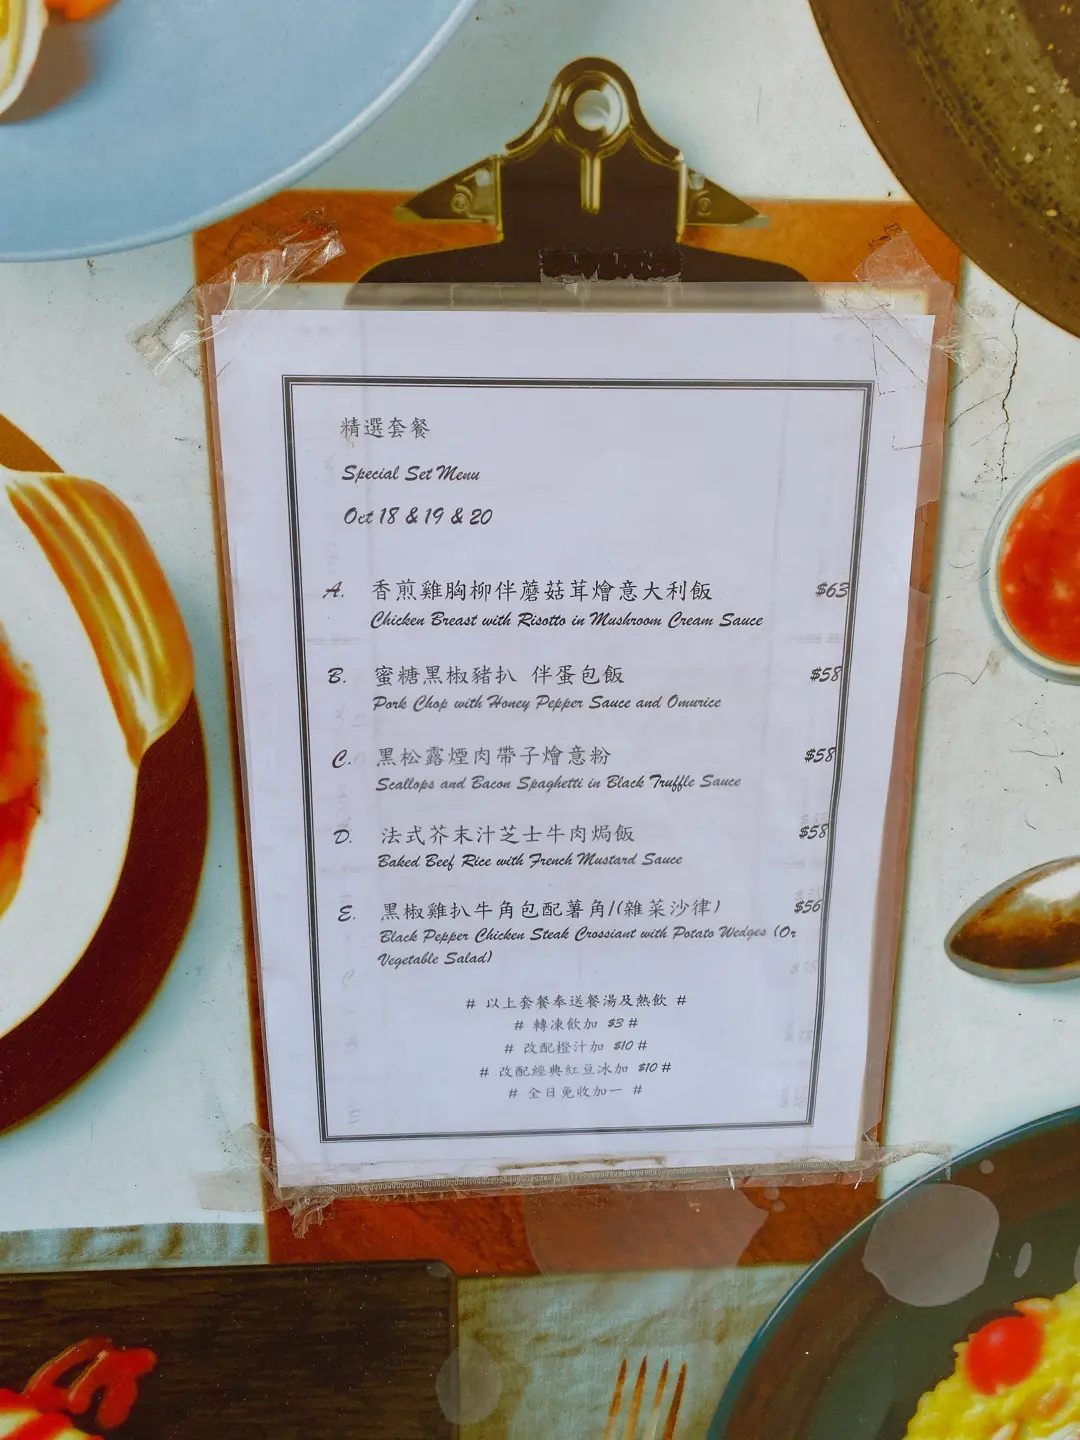 精選套餐
Special Set Menu
Oct 18 & 19 & 20
A. 香煎雞胸柳伴蘑菇茸燴意大利飯 $63
Chicken Breast with Risotto in Mushroom Cream Sauce
B. 蜜糖黑椒豬扒 伴蛋包飯 $58
Pork Chop with Honey Pepper Sauce and Omurice
C. 黑松露煙肉帶子燴意粉 $58
Scallops and Bacon Spaghetti in Black Truffle Sauce
D. 法式芥末汁芝士牛肉焗飯 $58
Baked Beef Rice with French Mustard Sauce
E. 黑椒雞扒牛角包配薯角/(雜菜沙律) $56
Black Pepper Chicken Steak Crossiant with Potato Wedges (Or
Vegetable Salad)
# 以上套餐奉送餐湯及熱飲 #
# 轉凍飲加 $3 #
# 改配橙汁加 $10 #
# 改配經典紅豆冰加 $10 #
# 全日免收加一 #